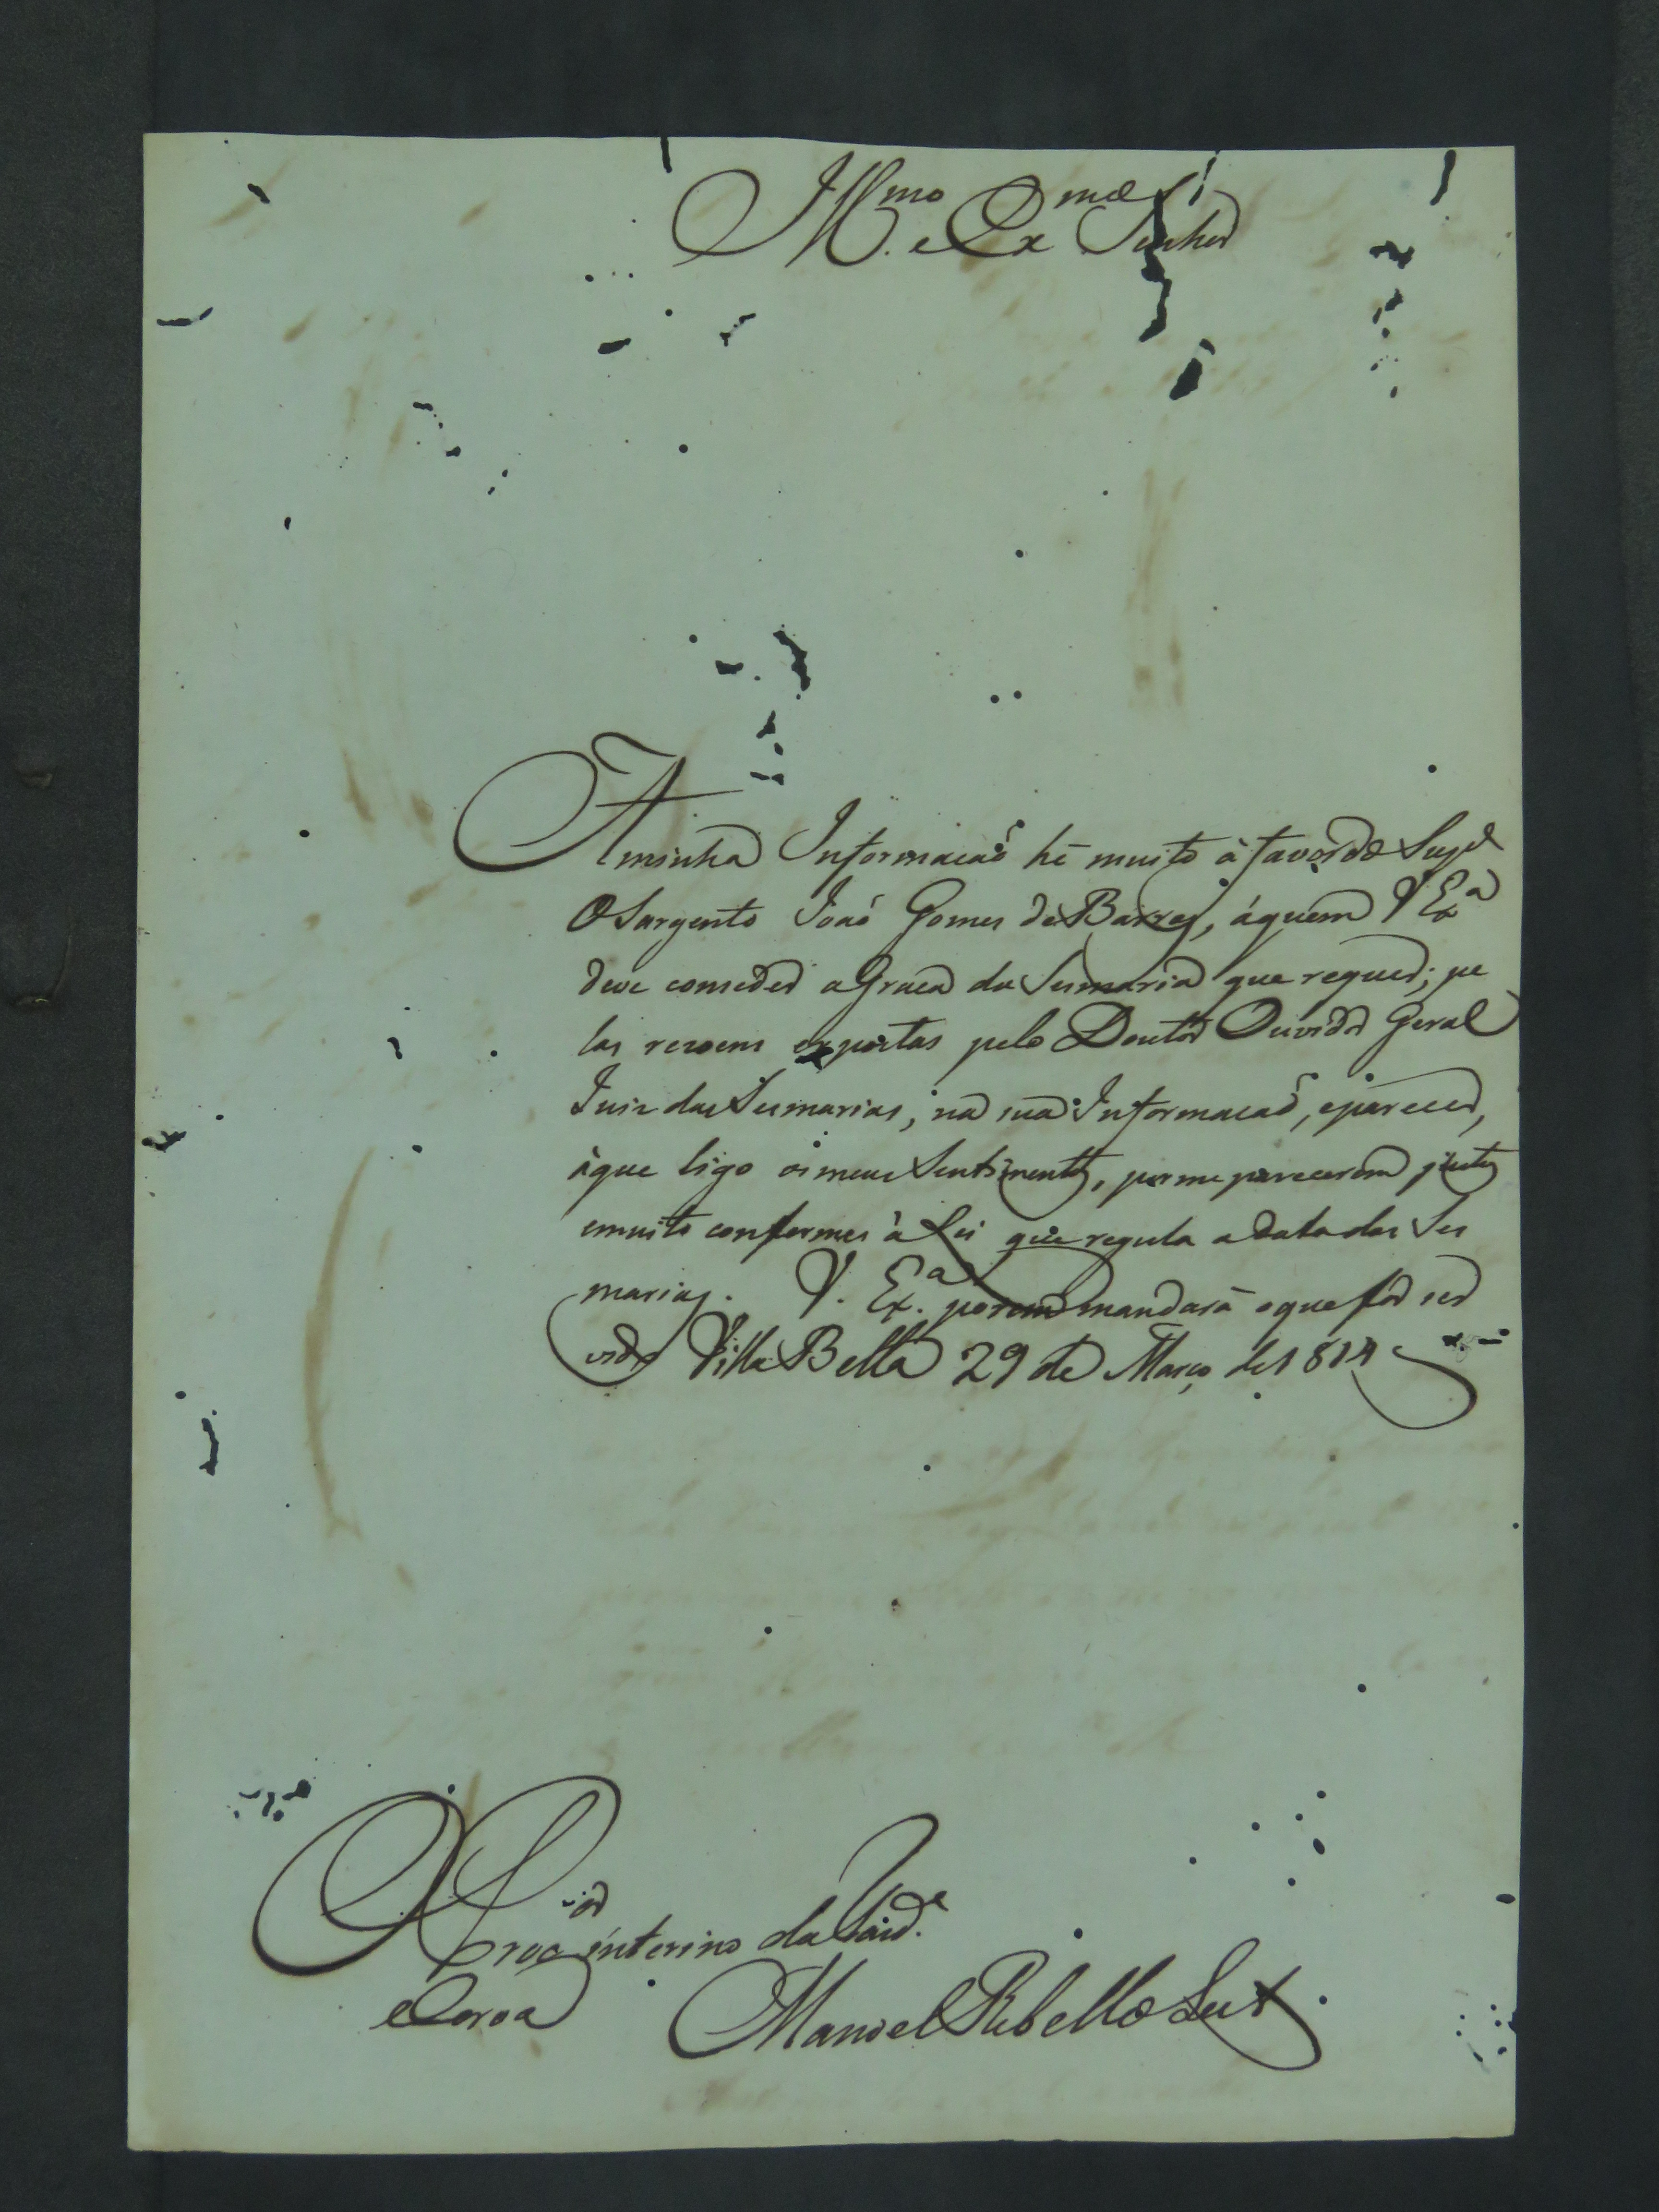 Ill.mo e Ex.mo Senhor
A minha Informacaõ hé muito á favor do Sup.e
O Sargento Joaõ Gomes de Barros, áquem V Ex.a
deve conceder a Graca da Sesmaria que requer; pe
las rezoens expostas pelo Doutor Ouvidor Geral
Juiz das Sesmarias, na sua Informacaõ, eparecer,
àque ligo os meus Sentimentos, por me parecerem justos
emuito conformes à Lei que regula a Data das Ses
marias. V. Ex.a porem mandará oque for ser
vido Villa Bella 29 de Março de 1814
O Proc.or interino da
e Coroa
Manoel Rebello